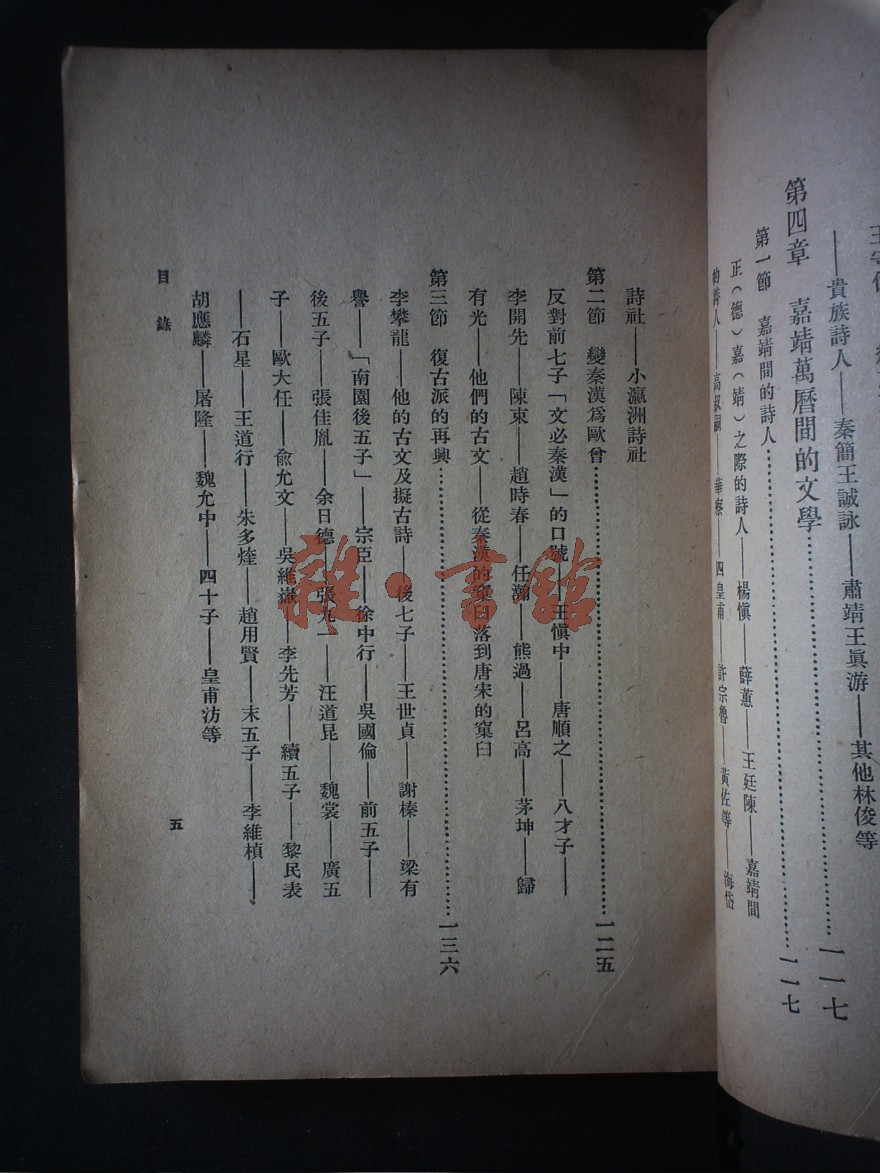 ——貴族詩人——秦簡王誠詠——肅靖王眞淤——其他林俊等
一一七
第四章 嘉靖萬曆間的文學
一一七
第一節 嘉靖間的詩人
正(德)嘉(靖)之際的詩人——楊愼——薛蕙——王廷陳——嘉靖間
的詩人——高叔嗣——華察——四皇甫——許宗魯——黃佐等——海岱
詩社——小瀛洲詩社
第二節 變秦漢爲歐曾………一二五
反對前七子「文必秦漢」的口號——王愼中——唐順之——八才子——
李開先——陳束——趙時春——任瀚——熊過——呂高——茅坤——歸
有光——他們的古文——從秦漢的窠臼落到唐宋的窠臼
第三節 復古派的再興………一三六
李攀龍——他的古文及擬古詩——後七子——王世貞——謝榛——梁有
譽——「南園後五子」——宗臣——徐中行——吳國倫——前五子——
後五子——張佳胤——余日德——張九一——汪道昆——魏裳——廣五
子——歐大任——俞允文——吳維嶽——李先芳——續五子——黎民表
——石星——王道行——朱多煃——趙用賢——末五子——李維楨——
胡應麟——屠隆——魏允中——四十子——皇甫汸等
目錄
五
雜·書館